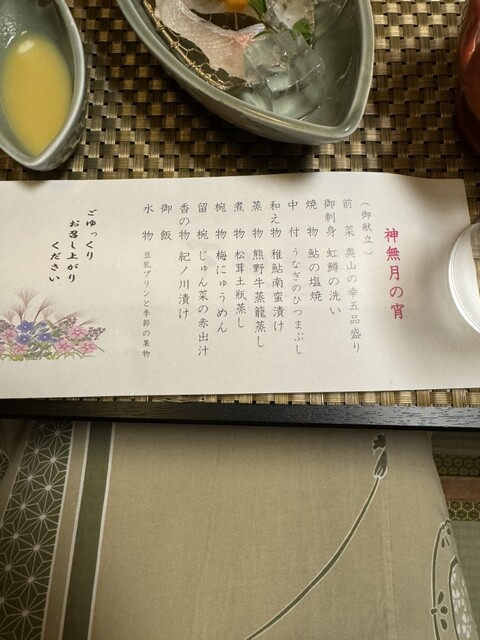 神無月の宵
(御献立)
前菜 奥山の幸五品盛り
御刺身 虹鱒の洗い
焼物 鮎の塩焼
中付 うなぎのひつまぶし
和え物 稚鮎南蛮漬け
蒸物 熊野牛蒸籠蒸し
煮物 松茸土瓶蒸し
椀物 梅にゅうめん
留椀 じゅん菜の赤出汁
香の物 紀ノ川漬け
御飯
水物 豆乳プリンと季節の果物
ごゆっくり
お召し上がり
ください